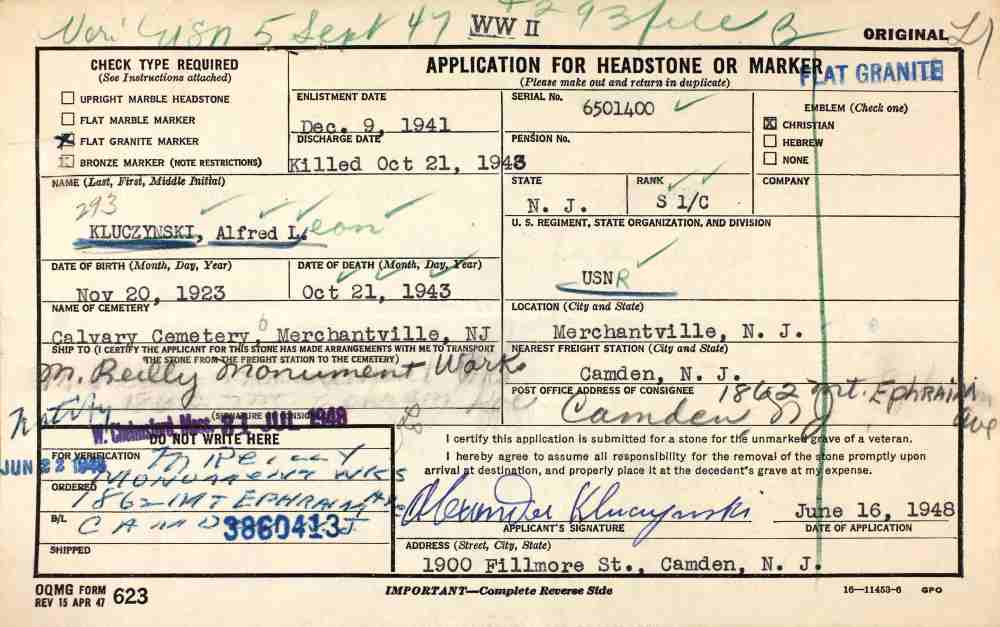 Veri USN 5 Sept 47 WW II 293 file B
ORIGINAL
CHECK TYPE REQUIRED
(See Instructions attached)
UPRIGHT MARBLE HEADSTONE
FLAT MARBLE MARKER
X FLAT GRANITE MARKER
BRONZE MARKER (NOTE RESTRICTIONS)
APPLICATION FOR HEADSTONE OR MARKER
(Please make out and return in duplicate)
FLAT GRANITE
ENLISTMENT DATE
Dec. 9, 1941
DISCHARGE DATE
Killed Oct 21, 1943
SERIAL No.
6501400
PENSION No.
EMBLEM (Check one)
X CHRISTIAN
HEBREW
NONE
NAME (Last, First, Middle Initial)
293
KLUCZYNSKI, Alfred L. eon
STATE
N. J.
RANK
S 1/C
COMPANY
U. S. REGIMENT, STATE ORGANIZATION, AND DIVISION
USNR
DATE OF BIRTH (Month, Day, Year)
Nov 20, 1923
DATE OF DEATH (Month, Day, Year)
Oct 21, 1943
NAME OF CEMETERY
Calvary Cemetery, Merchantville, NJ
LOCATION (City and State)
Merchantville, N. J.
SHIP TO (I CERTIFY THE APPLICANT FOR THIS STONE HAS MADE ARRANGEMENTS WITH ME TO TRANSPORT
THE STONE FROM THE FREIGHT STATION TO THE CEMETERY)
M. Reilly Monument Works
NEAREST FREIGHT STATION (City and State)
Camden, N. J.
POST OFFICE ADDRESS OF CONSIGNEE
1862 Mt. Ephraim Ave
Camden NJ
Notify
(SIGNATURE OF CONSIGNEE)
W. Chelmsford, Mass. 21 JUL 1948
DO NOT WRITE HERE
FOR VERIFICATION
JUN 22 1948
M REILLY
MONUMENT WKS
ORDERED
1862 MT EPHRAIM AVE
B/L
CAMDEN NJ
3860413
SHIPPED
I certify this application is submitted for a stone for the unmarked grave of a veteran.
I hereby agree to assume all responsibility for the removal of the stone promptly upon
arrival at destination, and properly place it at the decedent's grave at my expense.
Alexander Kluczynski
APPLICANT'S SIGNATURE
June 16, 1948
DATE OF APPLICATION
ADDRESS (Street, City, State)
1900 Fillmore St., Camden, N. J.
OQMG FORM
REV 15 APR 47 623
IMPORTANT—Complete Reverse Side
16—11453-6 GPO